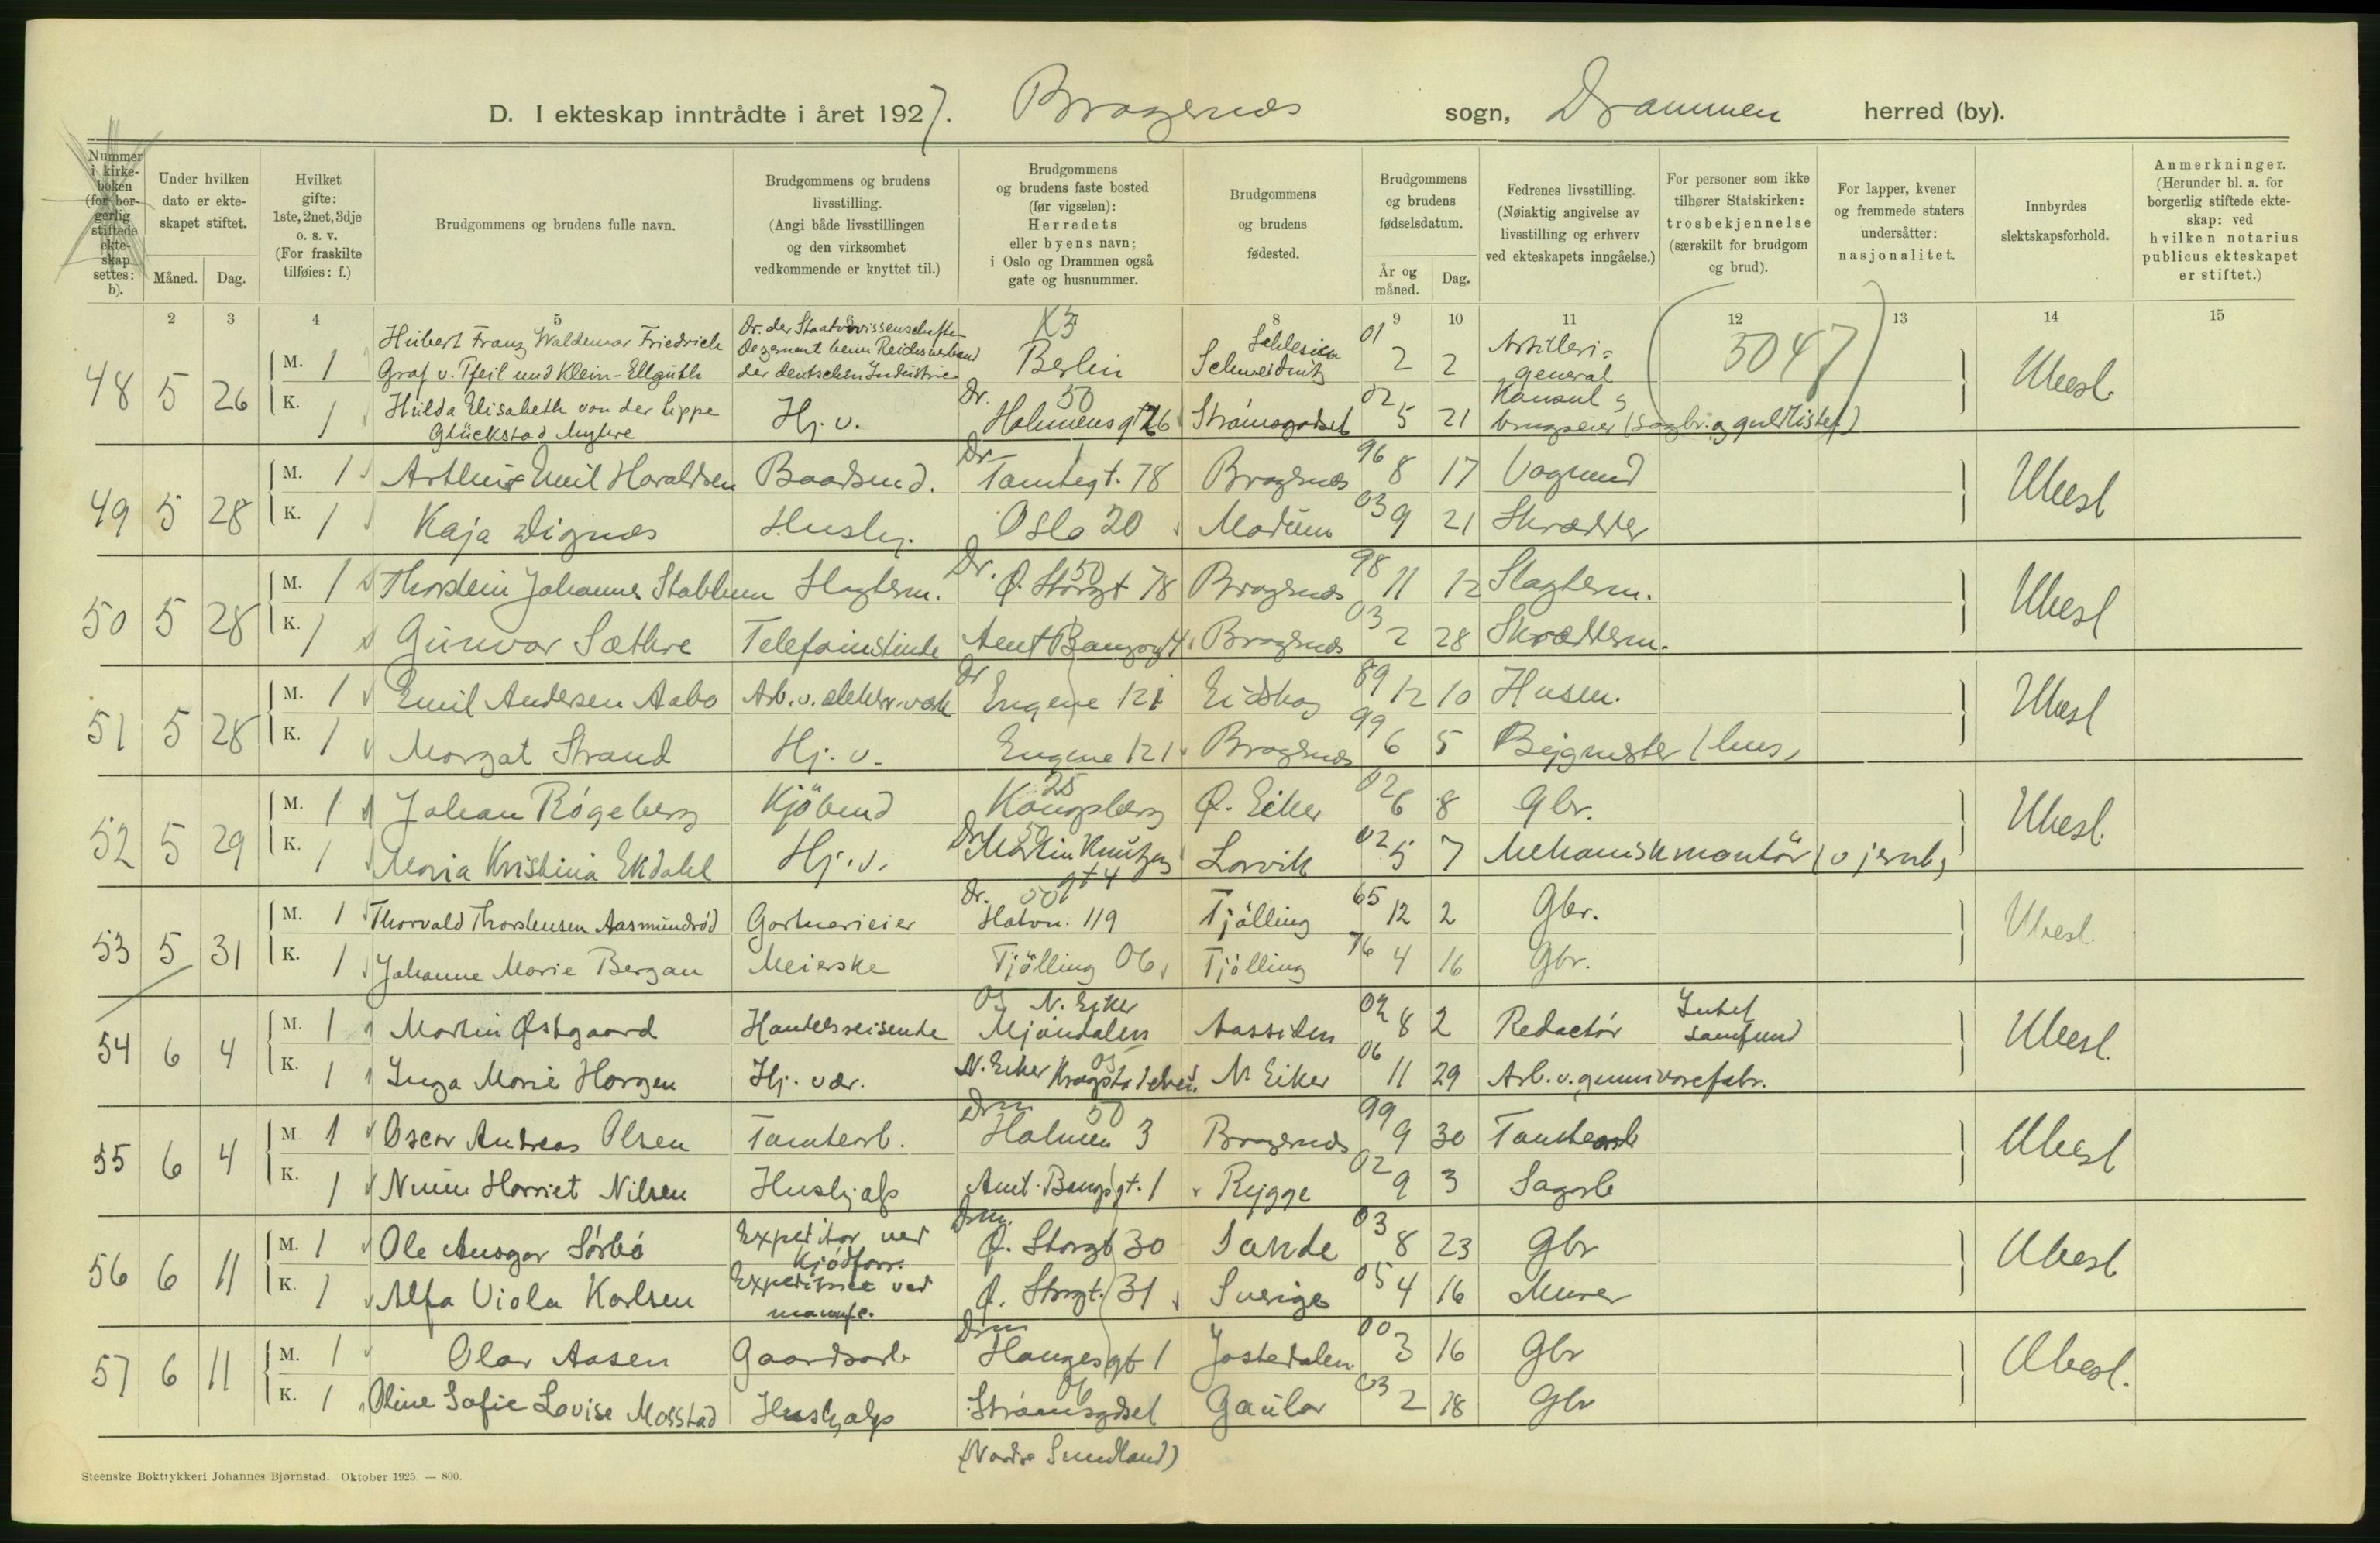 D. I ekteskap inntrådte i året 1927. Bragernæs sogn, Drammen herred (by).
Nummer i kirkeboken (for borgerlig stiftede ekteskap settes: b).
Under hvilken dato er ekteskapet stiftet.
Måned. Dag.
Hvilket gifte: 1ste, 2net, 3dje o. s. v. (For fraskilte tilføies: f.)
Brudgommens og brudens fulle navn.
Brudgommens og brudens livsstilling. (Angi både livsstillingen og den virksomhet vedkommende er knyttet til.)
Brudgommens og brudens faste bosted (før vigselen): Herredets eller byens navn; i Oslo og Drammen også gate og husnummer.
Brudgommens og brudens fødested.
Brudgommens og brudens fødselsdatum.
År og måned. Dag.
Fedrenes livsstilling. (Nøiaktig angivelse av livsstilling og erhverv ved ekteskapets inngåelse.)
For personer som ikke tilhører Statskirken: trosbekjennelse (særskilt for brudgom og brud).
For lapper, kvener og fremmede staters undersåtter: nasjonalitet.
Innbyrdes slektskapsforhold.
Anmerkninger. (Herunder bl. a. for borgerlig stiftede ekteskap: ved hvilken notarius publicus ekteskapet er stiftet.)
2 3 4 5 8 9 10 11 12 13 14 15
48 5 26 M. 1 Hubert Franz Waldemar Friedrich Graf v. Pfeil und Klein-Ellguth Dr. der Staatswissenschaften Dezernent beim Reichsverband der deutschen Industrie Berlin Schlesien Schweidnitz 01 2 2 Artilleri-general (3047) Ubesl.
K. 1 Hilda Elisabeth von der Lippe Glückstad Myhre Hj. v. Dr. 50 Holmensgt 26 Strømsgodset 02 5 21 Konsul brugseier
49 5 28 M. 1 Arthur Emil Haraldsen Baadsmd. Dr. Tomtegt. 78 Bragernæs 96 8 17 Vognmd Ubesl
K. 1 Kaja Dignæs Hushj. Oslo 20 Modum 03 9 21 Skrædder
50 5 28 M. 1 Thorstein Johannes Stabbum Slagterm. Dr. 50 Ø. Storgt 78 Bragernæs 98 11 12 Slagterm. Ubesl
K. 1 Gunvor Sæthre Telefonistinde Amt. Bangsgt 4 Bragernæs 03 2 28 Skrædderm.
51 5 28 M. 1 Emil Andersen Aabo Arb. v. elektr. værk Dr Engene 121 Eidskog 89 12 10 Husm. Ubesl
K. 1 Margot Strand Hj. v. Engene 121 Bragernæs 99 6 5 Bygmester (hus)
52 5 29 M. 1 Johan Røgeberg Kjöbmd 25 Kongsberg Ø. Eiker 02 6 8 Gbr. Ubesl.
K. 1 Maria Kristina Ekdahl Hj. v. Dr 50 Martin Knutzens gt 4 Larvik 02 5 7 Mekanisk montör (v jernb)
53 5 31 M. 1 Thorvald Thorstensen Aasmundrød Gartnerieier Dr. 50 Hotvn. 119 Tjölling 65 12 2 Gbr. Ubesl.
K. 1 Johanne Marie Bergan Meierske Tjölling 06 Tjölling 76 4 16 Gbr.
54 6 4 M. 1 Martin Østgaard Handelsreisende 05 N. Eiker Mjøndalen Aassiden 02 8 2 Redactør Intet samfund Ubesl.
K. 1 Inga Marie Horgen Hj. vær. N. Eiker 05 N. Eiker 06 11 29 Arb. v. gummivarefabr.
55 6 4 M. 1 Oscar Andreas Olsen Tomtearb. Drm 50 Holmen 3 Bragernæs 99 9 30 Tomtearb Ubesl
K. 1 Numi Harriet Nilsen Hushjælp Amt. Bangsgt. 1 Rygge 02 9 3 Sagarb
56 6 11 M. 1 Ole Ansgar Sörbö Expeditor ved Kjødforr. Drm. Ø. Storgt 30 Sande 03 8 23 Gbr Ubesl
K. 1 Alfa Viola Karlsen Expeditrice ved manufc. Ø. Storgt. 31 Sverige 05 4 16 Murer
57 6 11 M. 1 Olav Aasen Gaardsarb Drm Haugesgt 1 Jostedalen 00 3 16 Gbr Ubesl.
K. 1 Oline Sofie Lovise Mosstad Hushjælp 06 Strømsgodset Gaular 03 2 18 Gbr
(Nordre Sundland)
Steenske Boktrykkeri Johannes Bjørnstad. Oktober 1925. — 800.